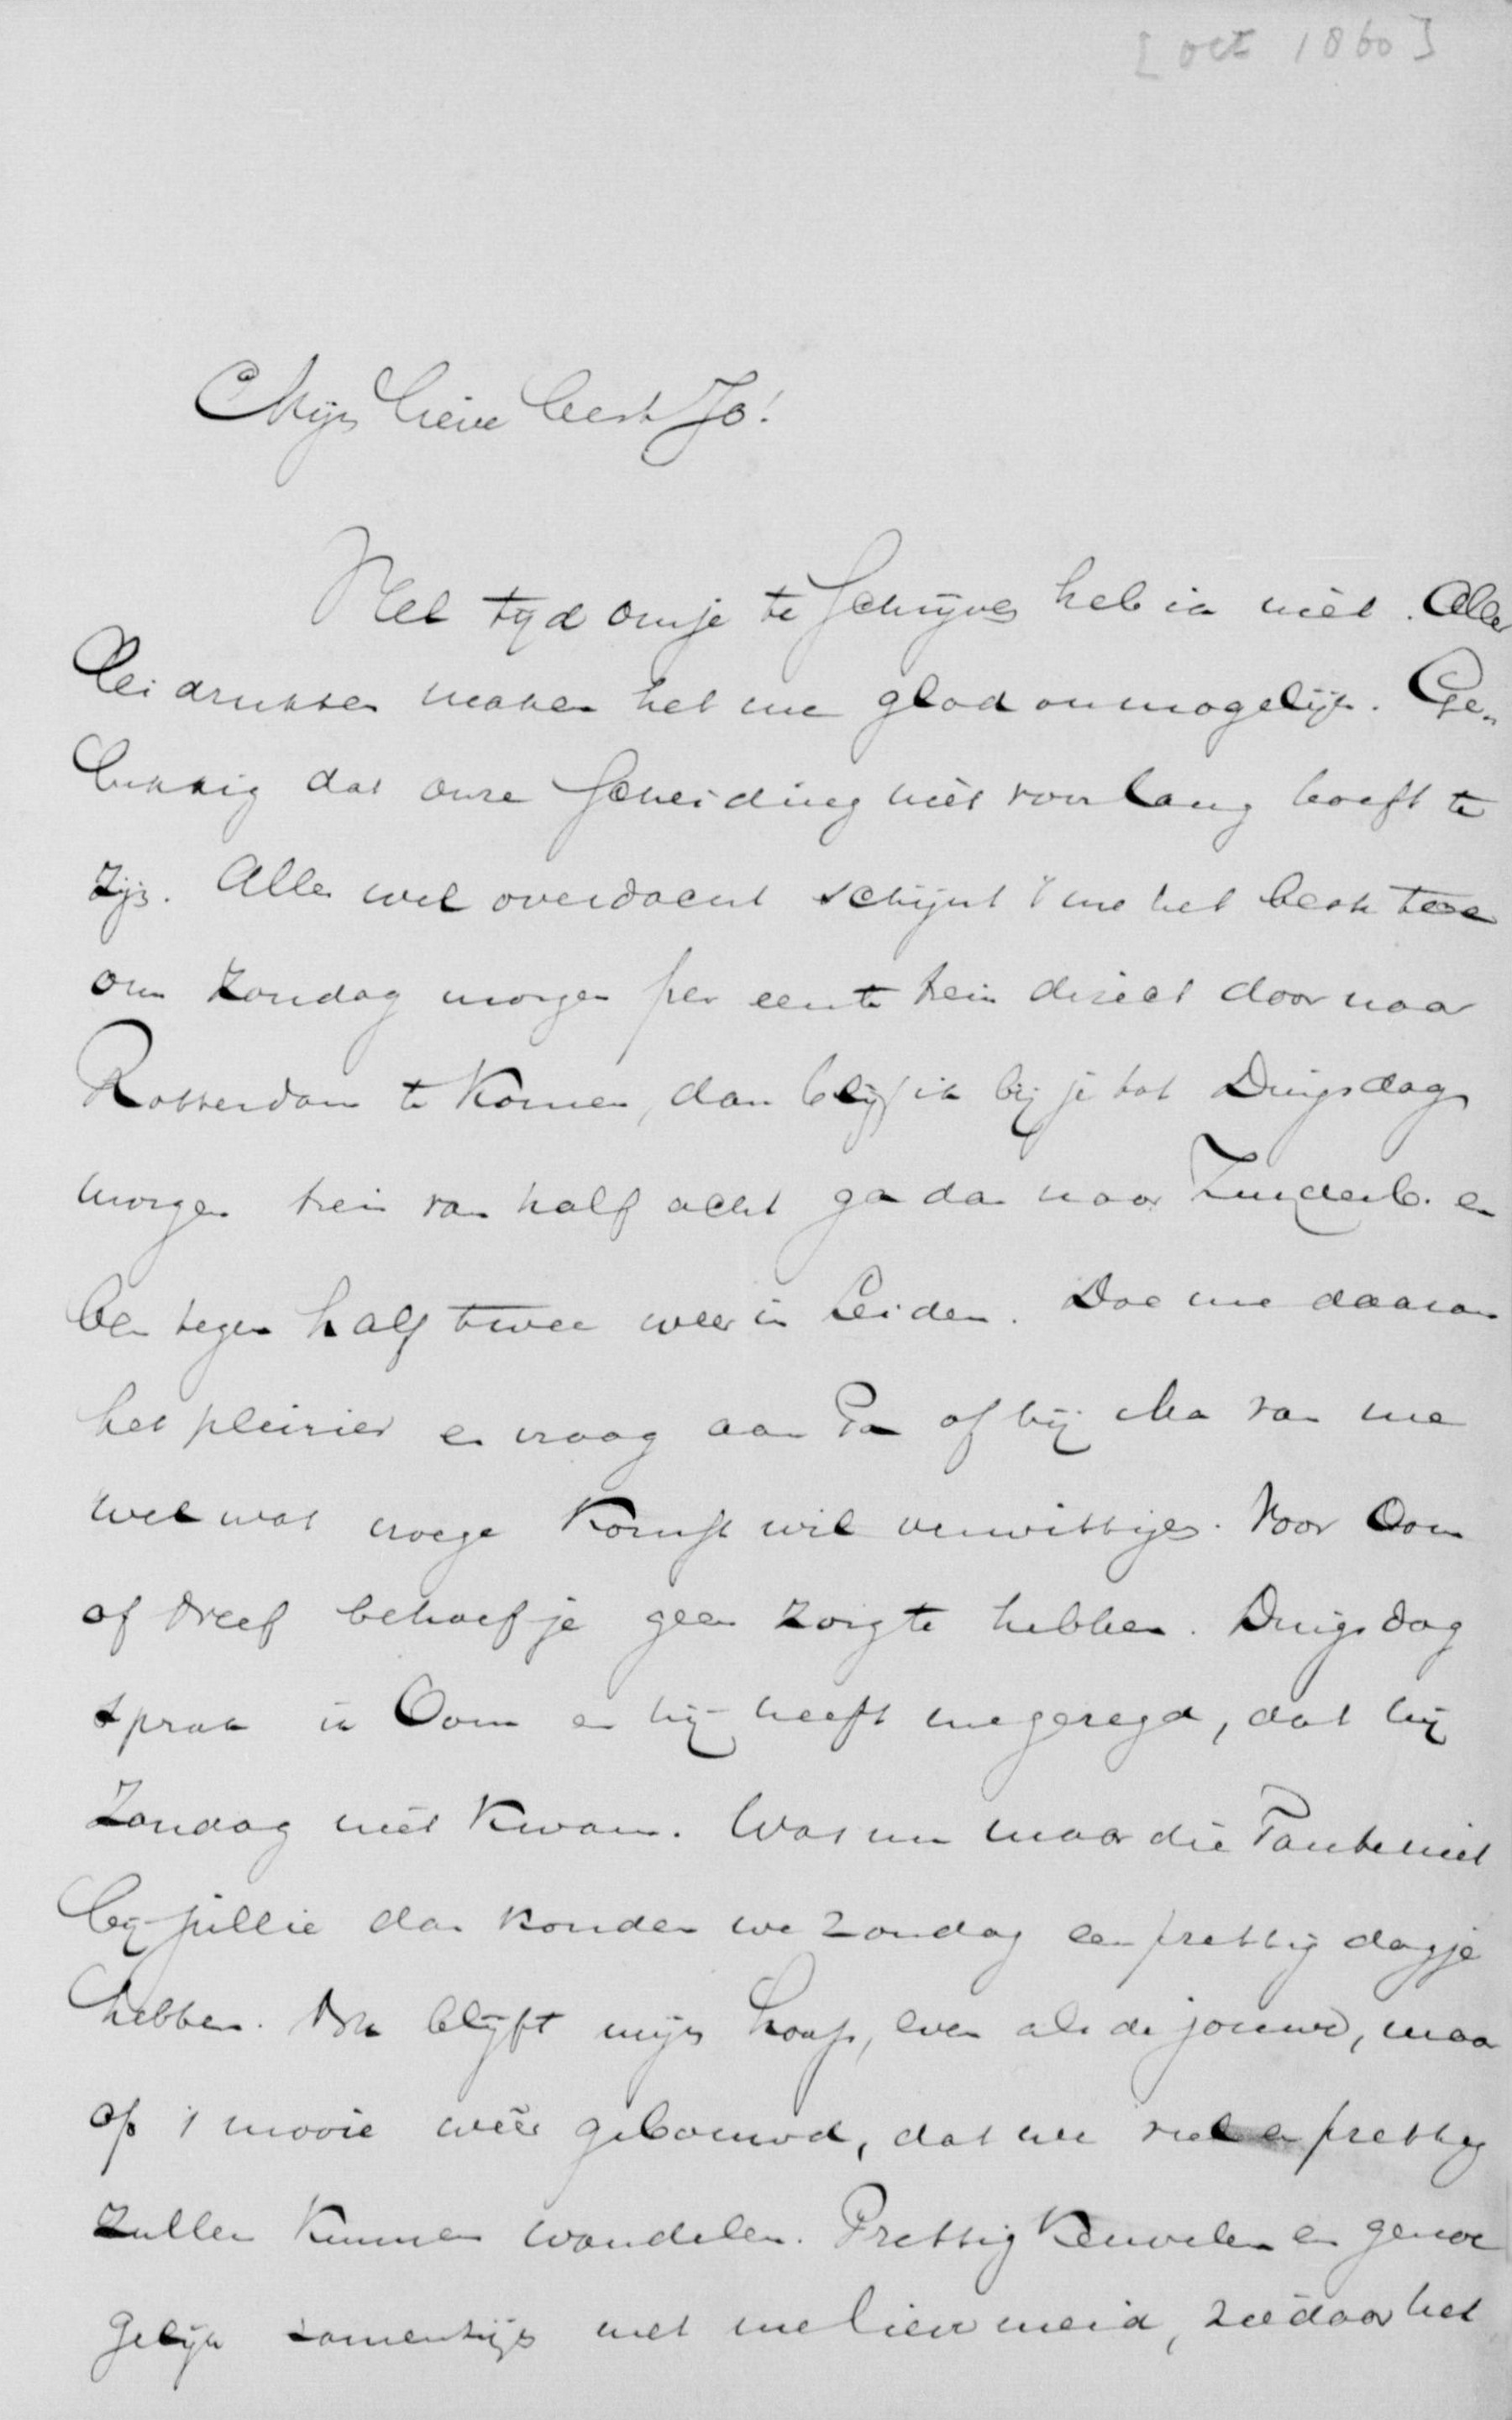 [oct 1860]
Mijn lieve beste Jo!
Veel tyd om je te schrijven heb ik niet. Aller
lei drukten maken het me glad onmogelijk. Ge„
lukkig dat onze scheiding niet voor lang hoeft te
zijn. Alles wel overdacht schijnt 't me het beste toe
om Zondag morgen per eerste trein direct door naar
Rotterdam te komen, dan blijf ik bij je tot Dingsdag
morgen trein van half acht ga dan naar en
ben tegen half twee weer in Leiden. Doe me daarom
het pleizier en vraag aan Pa of hij Ma van me
wel wat vroege komst wil verwittigen. Voor Oom
of Dreef behoef je geen zorg te hebben. Dingsdag
sprak ik Oom en hij heeft me gezegd, dat hij
Zondag niet kwam. Was nu maar die Tante niet
bij jullie dan konden we Zondag een prettig dagje
hebben. Nu blijft mijn hoop, even als de jouwe, maar
op 't mooie weêr gebouwd, dat we veel en prettig
zullen kunnen wandelen. Prettig keuvelen en genoe
gelijk samenzijn met me lieve meid, ziedaar het